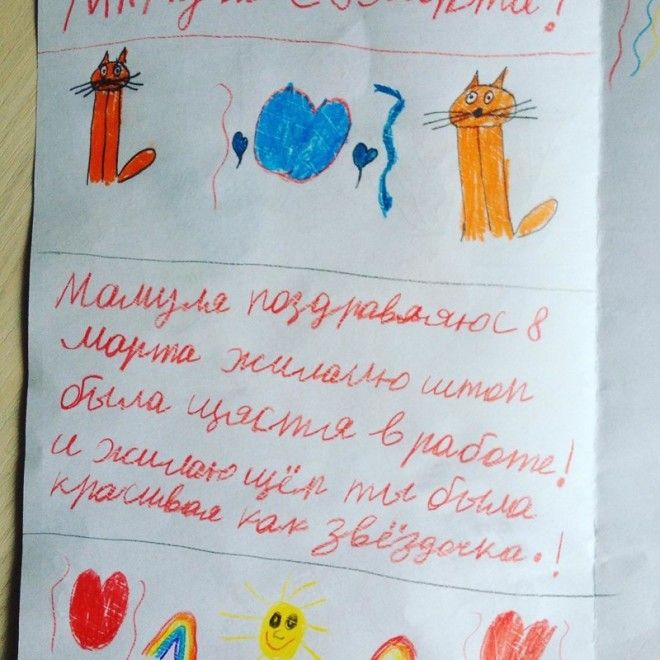 Мамуля с 8 марта!
Мамуля поздравляюс 8
марта жилаию штоп
была щястя в работе!
и жилаю щёп ты была
красивая как звёздочка.!